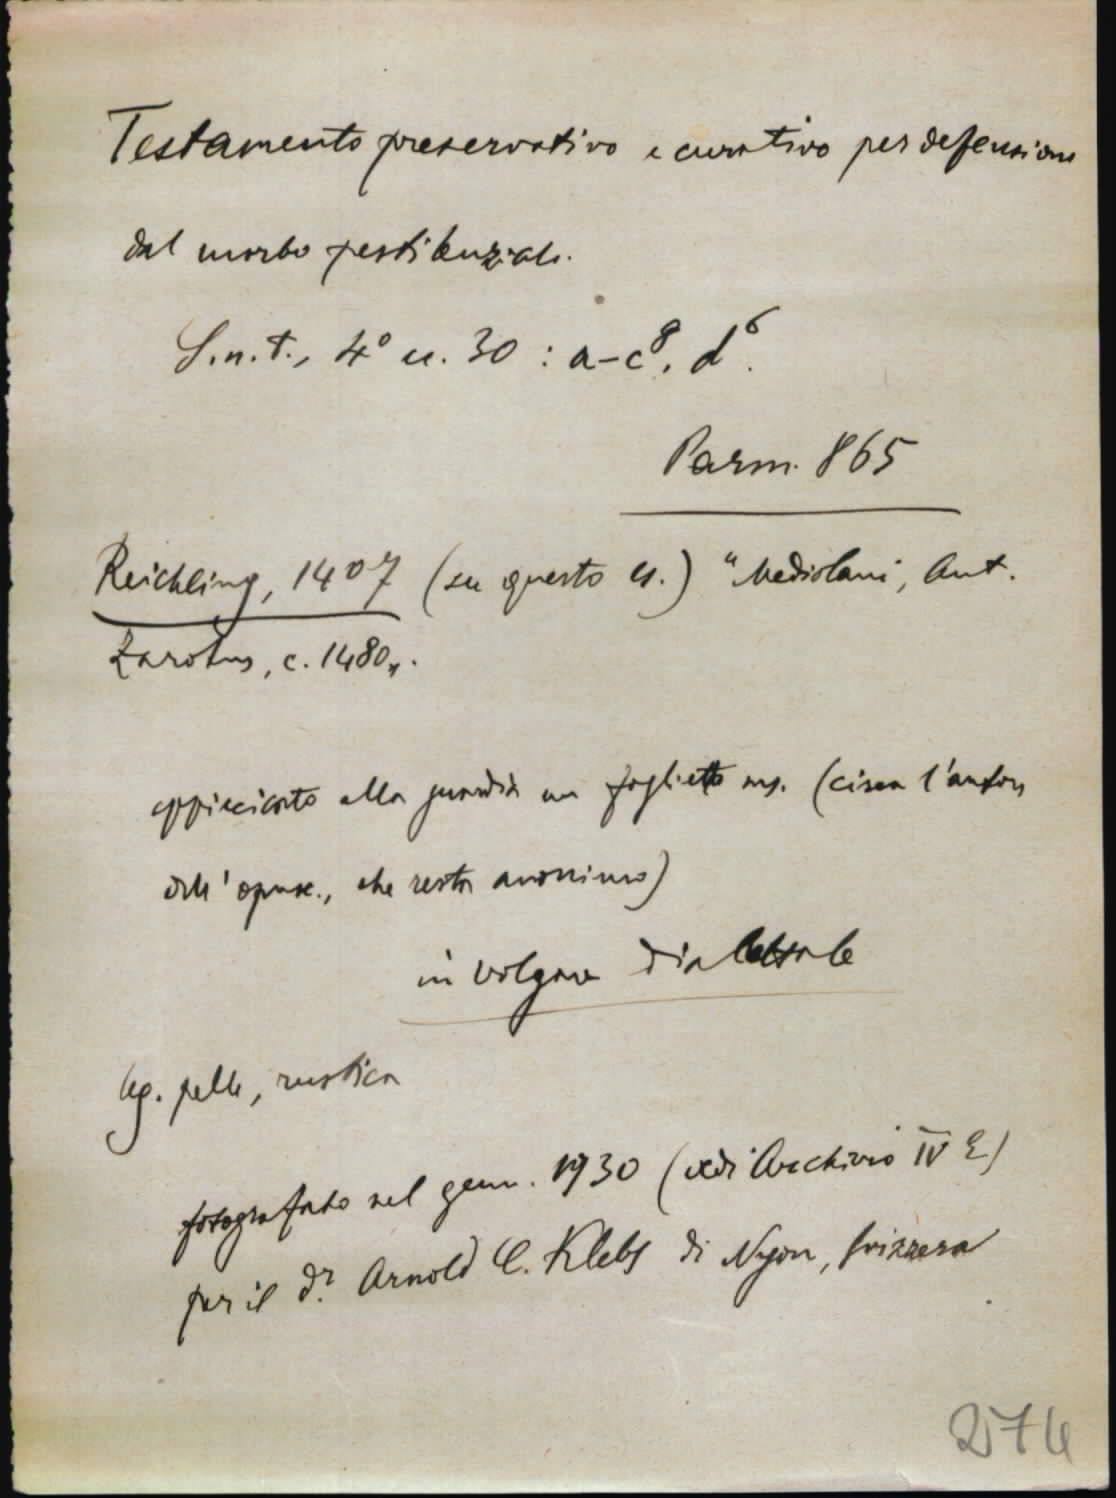 Testamento preservativo e curativo per defensione
dal morbo pestilenziale.
S.n.t., 4° cc. 30 : a-c⁸, d⁶.
Parm. 865
Reichling, 1407 (su questo es.) "Mediolani, Ant.
Zarotus, c. 1480".
appiccicato alla guardia un foglietto ms. (circa l'autore
dell'opusc., che resta anonimo)
in volgare dialettale
leg. pelle, rustica
fotografato nel genn. 1930 (vedi Archivio IV
per il dr. Arnold C. Klebs di Nyon, Svizzera
274